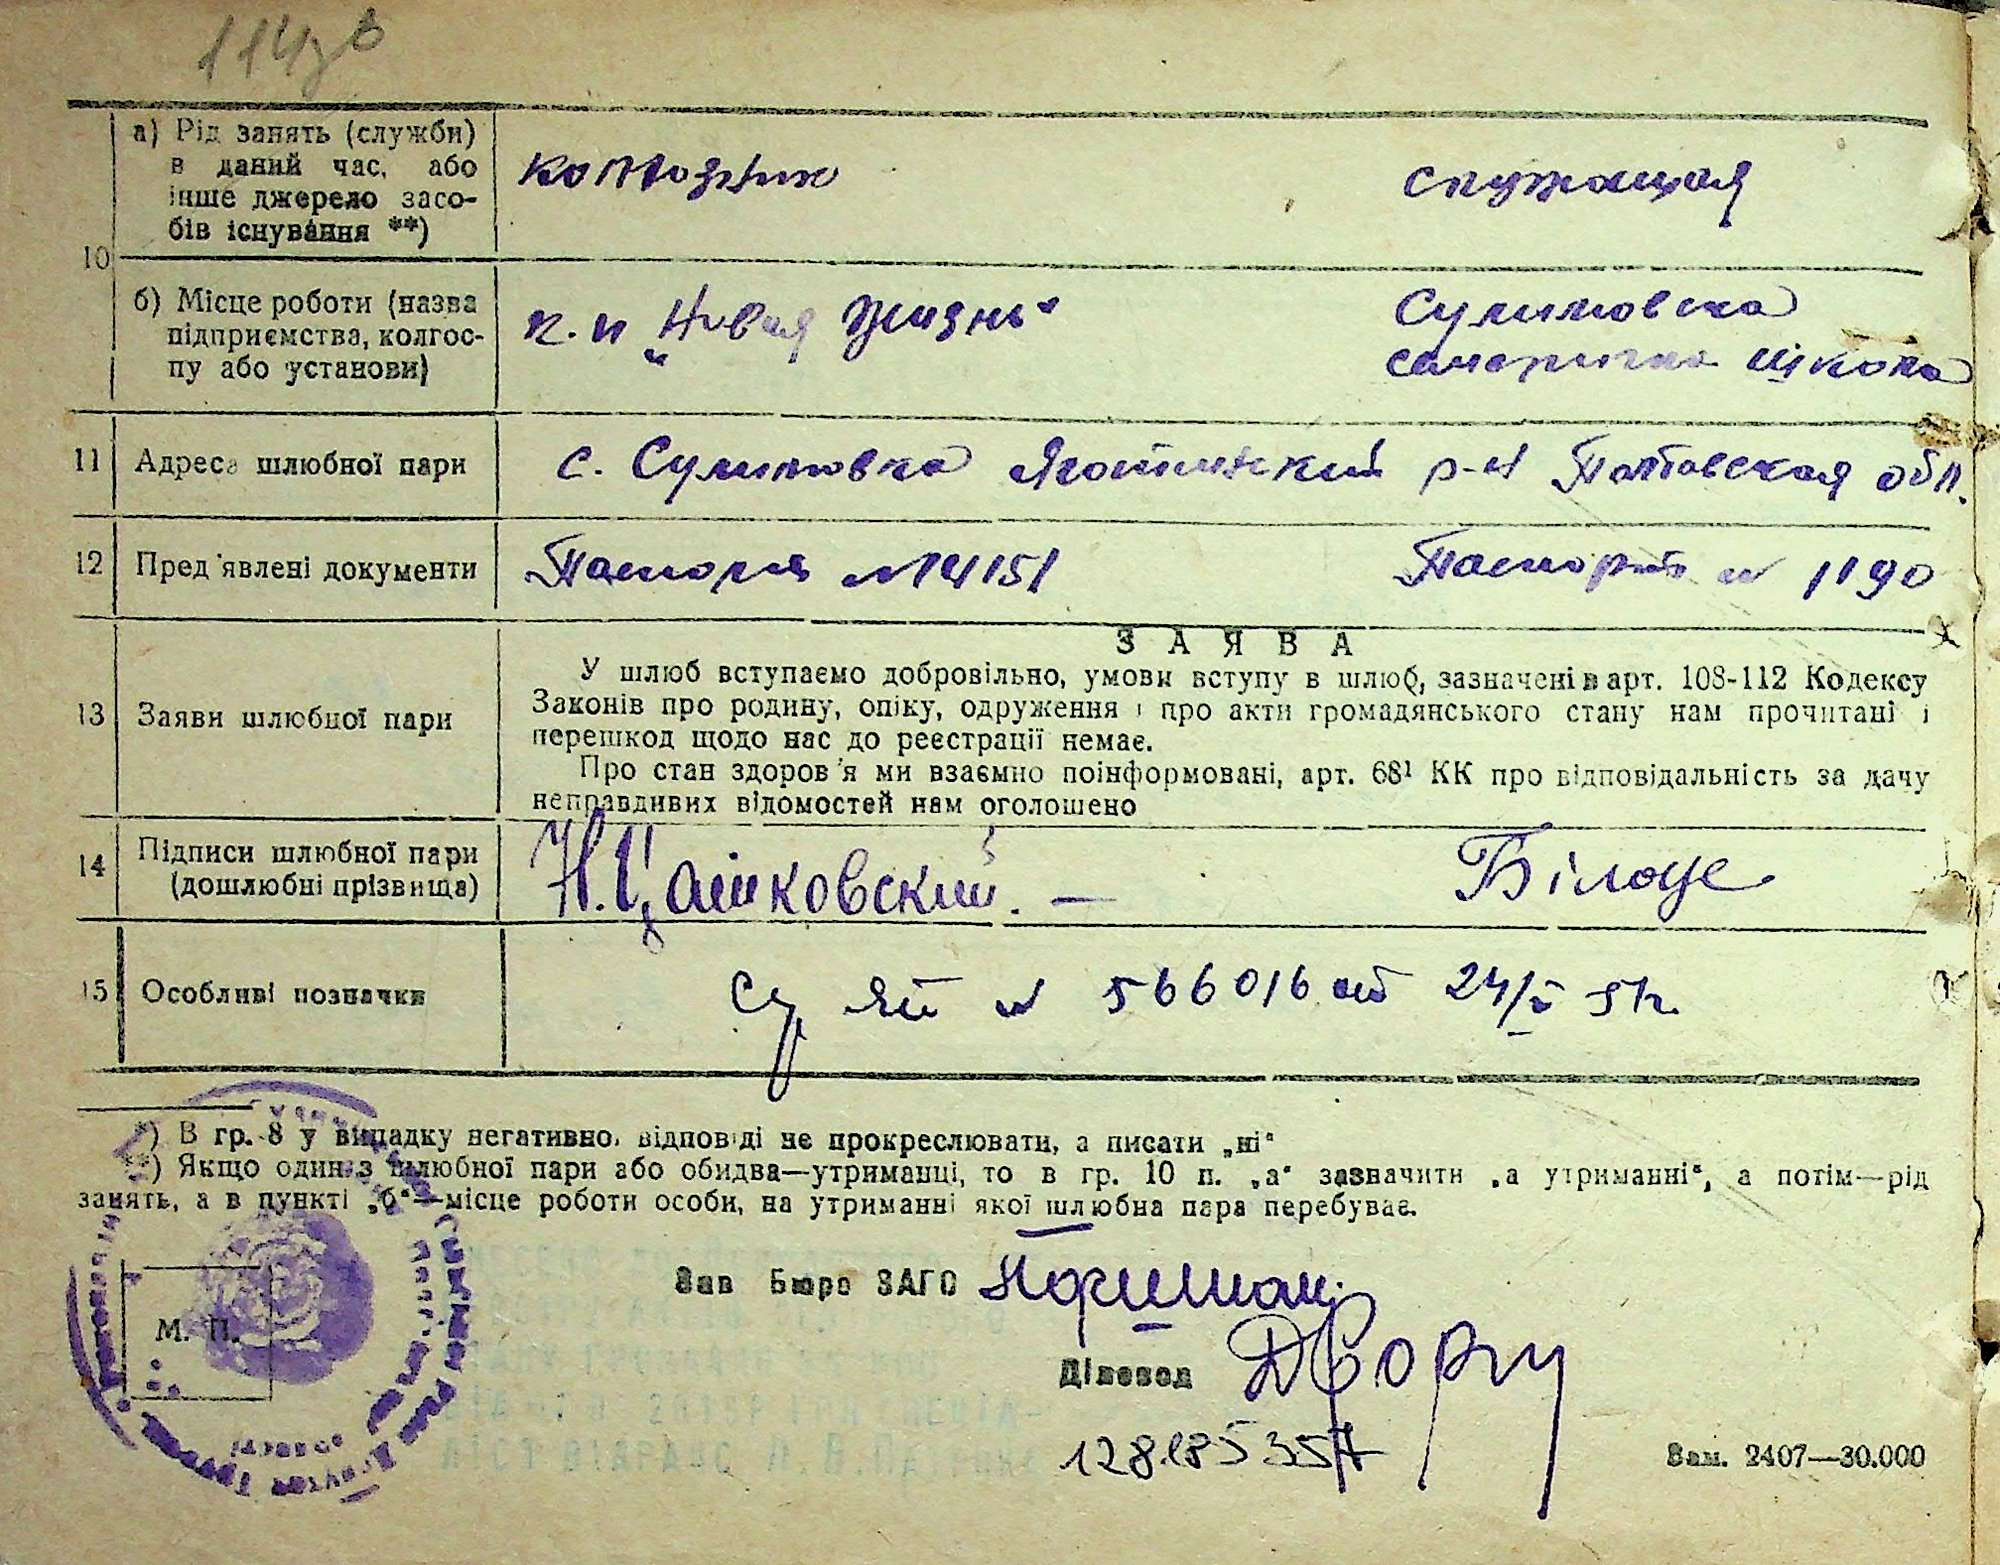 114зв
а) Рід занять (служби)
в даний час, або
інше джерело засо-
бів існування **)
колхозник
служащая
10
б) Місце роботи (назва
підприємства, колгос-
пу або установи)
к. и „Новая Жизнь"
Сулимовска
семирична школа
11
Адреса шлюбної пари
с. Сулимовка Яготинский р-н Полтавская обл.
12
Пред'явлені документи
Паспорт № 14151
Паспорт № 1190
ЗАЯВА
13
Заяви шлюбної пари
У шлюб вступаємо добровільно, умови вступу в шлюб, зазначені в арт. 108-112 Кодексу
Законів про родину, опіку, одруження і про акти громадянського стану нам прочитані і
перешкод щодо нас до реєстрації немає.
Про стан здоров'я ми взаємно поінформовані, арт. 68¹ КК про відповідальність за дачу
неправдивих відомостей нам оголошено
14
Підписи шлюбної пари
(дошлюбні прізвища)
Н. Цашковский. —
Білоус
15
Особливі позначки
№ 566016 от 24/V 51г.
*) В гр. 8 у випадку негативно, відповіді не прокреслювати, а писати „ні"
**) Якщо один з шлюбної пари або обидва—утриманці, то в гр. 10 п. „а" зазначити „а утриманні", а потім—рід
занять, а в пункті „б"—місце роботи особи, на утриманні якої шлюбна пара перебуває.
Зав Бюро ЗАГС
М. П.
Діловод
Зам. 2407—30.000